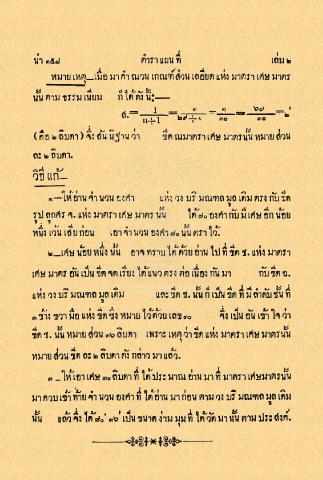 น่า ๑๕๘ ตำราแผนที่ เล่ม ๒
หมายเหตุ—เมื่อมาคำณวนเกณฑ์ส่วนเลอียดแห่งมาตราเศษมาตร
นั้นตามธรรมเนียม ก็ได้ดังนี้:—
( คือ ๒ ลิบดา ) จึ่งสันนิฐานว่า ขีดณมาตราเศษมาตรนั้นหมายส่วน
ละ ๒ ลิบดา.
วิธีแก้—
๑—ให้อ่านจำนวนองศา แห่งวงบริมณฑลมูลเดิมตรงกับขีด
รูปลูกศร จ. แห่งมาตราเศษมาตรนั้น ได้ ๘๐ องศากับมีเศษอีกน้อย
หนึ่ง เว้นเสียก่อน เอาจำนวนองศา ๘๐ นั้นตราไว้.
๒—เศษน้อยหนึ่งนั้น อาจทราบได้ด้วยอ่านไปที่ขีด ช. แห่งมาตรา
เศษมาตรอันเป็นขีดจดเรียงได้แนวตรงต่อเนื่องกันมา กับขีด ฉ.
แห่งวงบริมณฑลมูลเดิม และขีด ช. นั้นก็เป็นขีดที่มีลำดับชั้นที่
๓ ข้างขวามือแห่งขีดซึ่งหมายไว้ด้วยเลข ๓๐ จึ่งเป็นอันเข้าใจว่า
ขีด ช. นั้นหมายส่วน ๓๖ ลิบดา เพราะเหตุว่าขีดแห่งมาตราเศษมาตรนั้น
หมายส่วนขีดละ ๒ ลิบดาดังกล่าวมาแล้ว.
๓—ให้เอาเศษ ๓๖ ลิบดาที่ได้ประมาณอ่านมาที่มาตราเศษมาตรนั้น
มาควบเข้าท้ายจำนวนองศาที่ได้อ่านมาก่อนตามวงบริมณฑลมูลเดิม
นั้น แล้วจึ่งได้ ๘๐° ๓๖′ เป็นขนาดง่ามมุมที่ได้วัดมานั้นตามประสงค์.